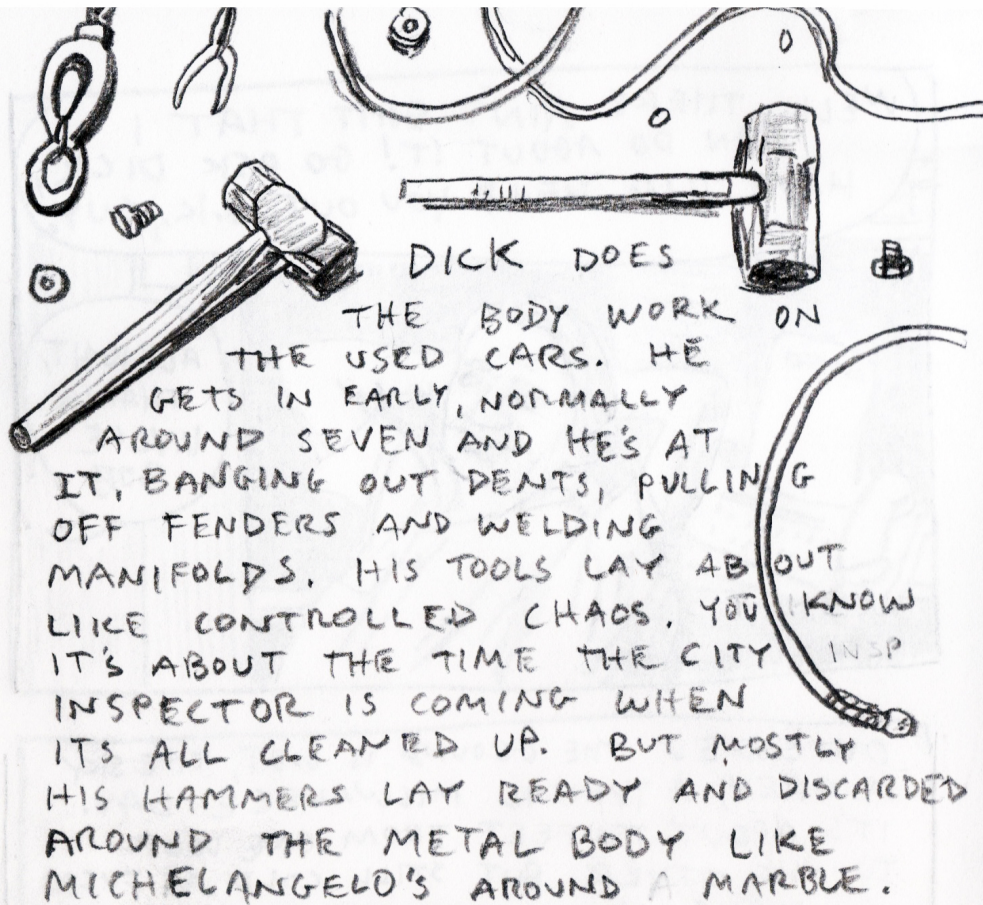 DICK DOES
THE BODY WORK ON
THE USED CARS. HE
GETS IN EARLY, NORMALLY
AROUND SEVEN AND HE'S AT
IT, BANGING OUT DENTS, PULLING
OFF FENDERS AND WELDING
MANIFOLDS. HIS TOOLS LAY ABOUT
LIKE CONTROLLED CHAOS. YOU KNOW
IT'S ABOUT THE TIME THE CITY
INSP
INSPECTOR IS COMING WHEN
ITS ALL CLEANED UP. BUT MOSTLY
HIS HAMMERS LAY READY AND DISCARDED
AROUND THE METAL BODY LIKE
MICHELANGELO'S AROUND A MARBLE.